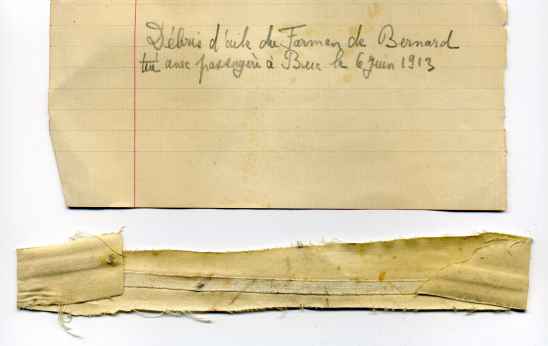 Débris d'aile du Farman de Bernard
tué avec passagère à Buc le 6 Juin 1913